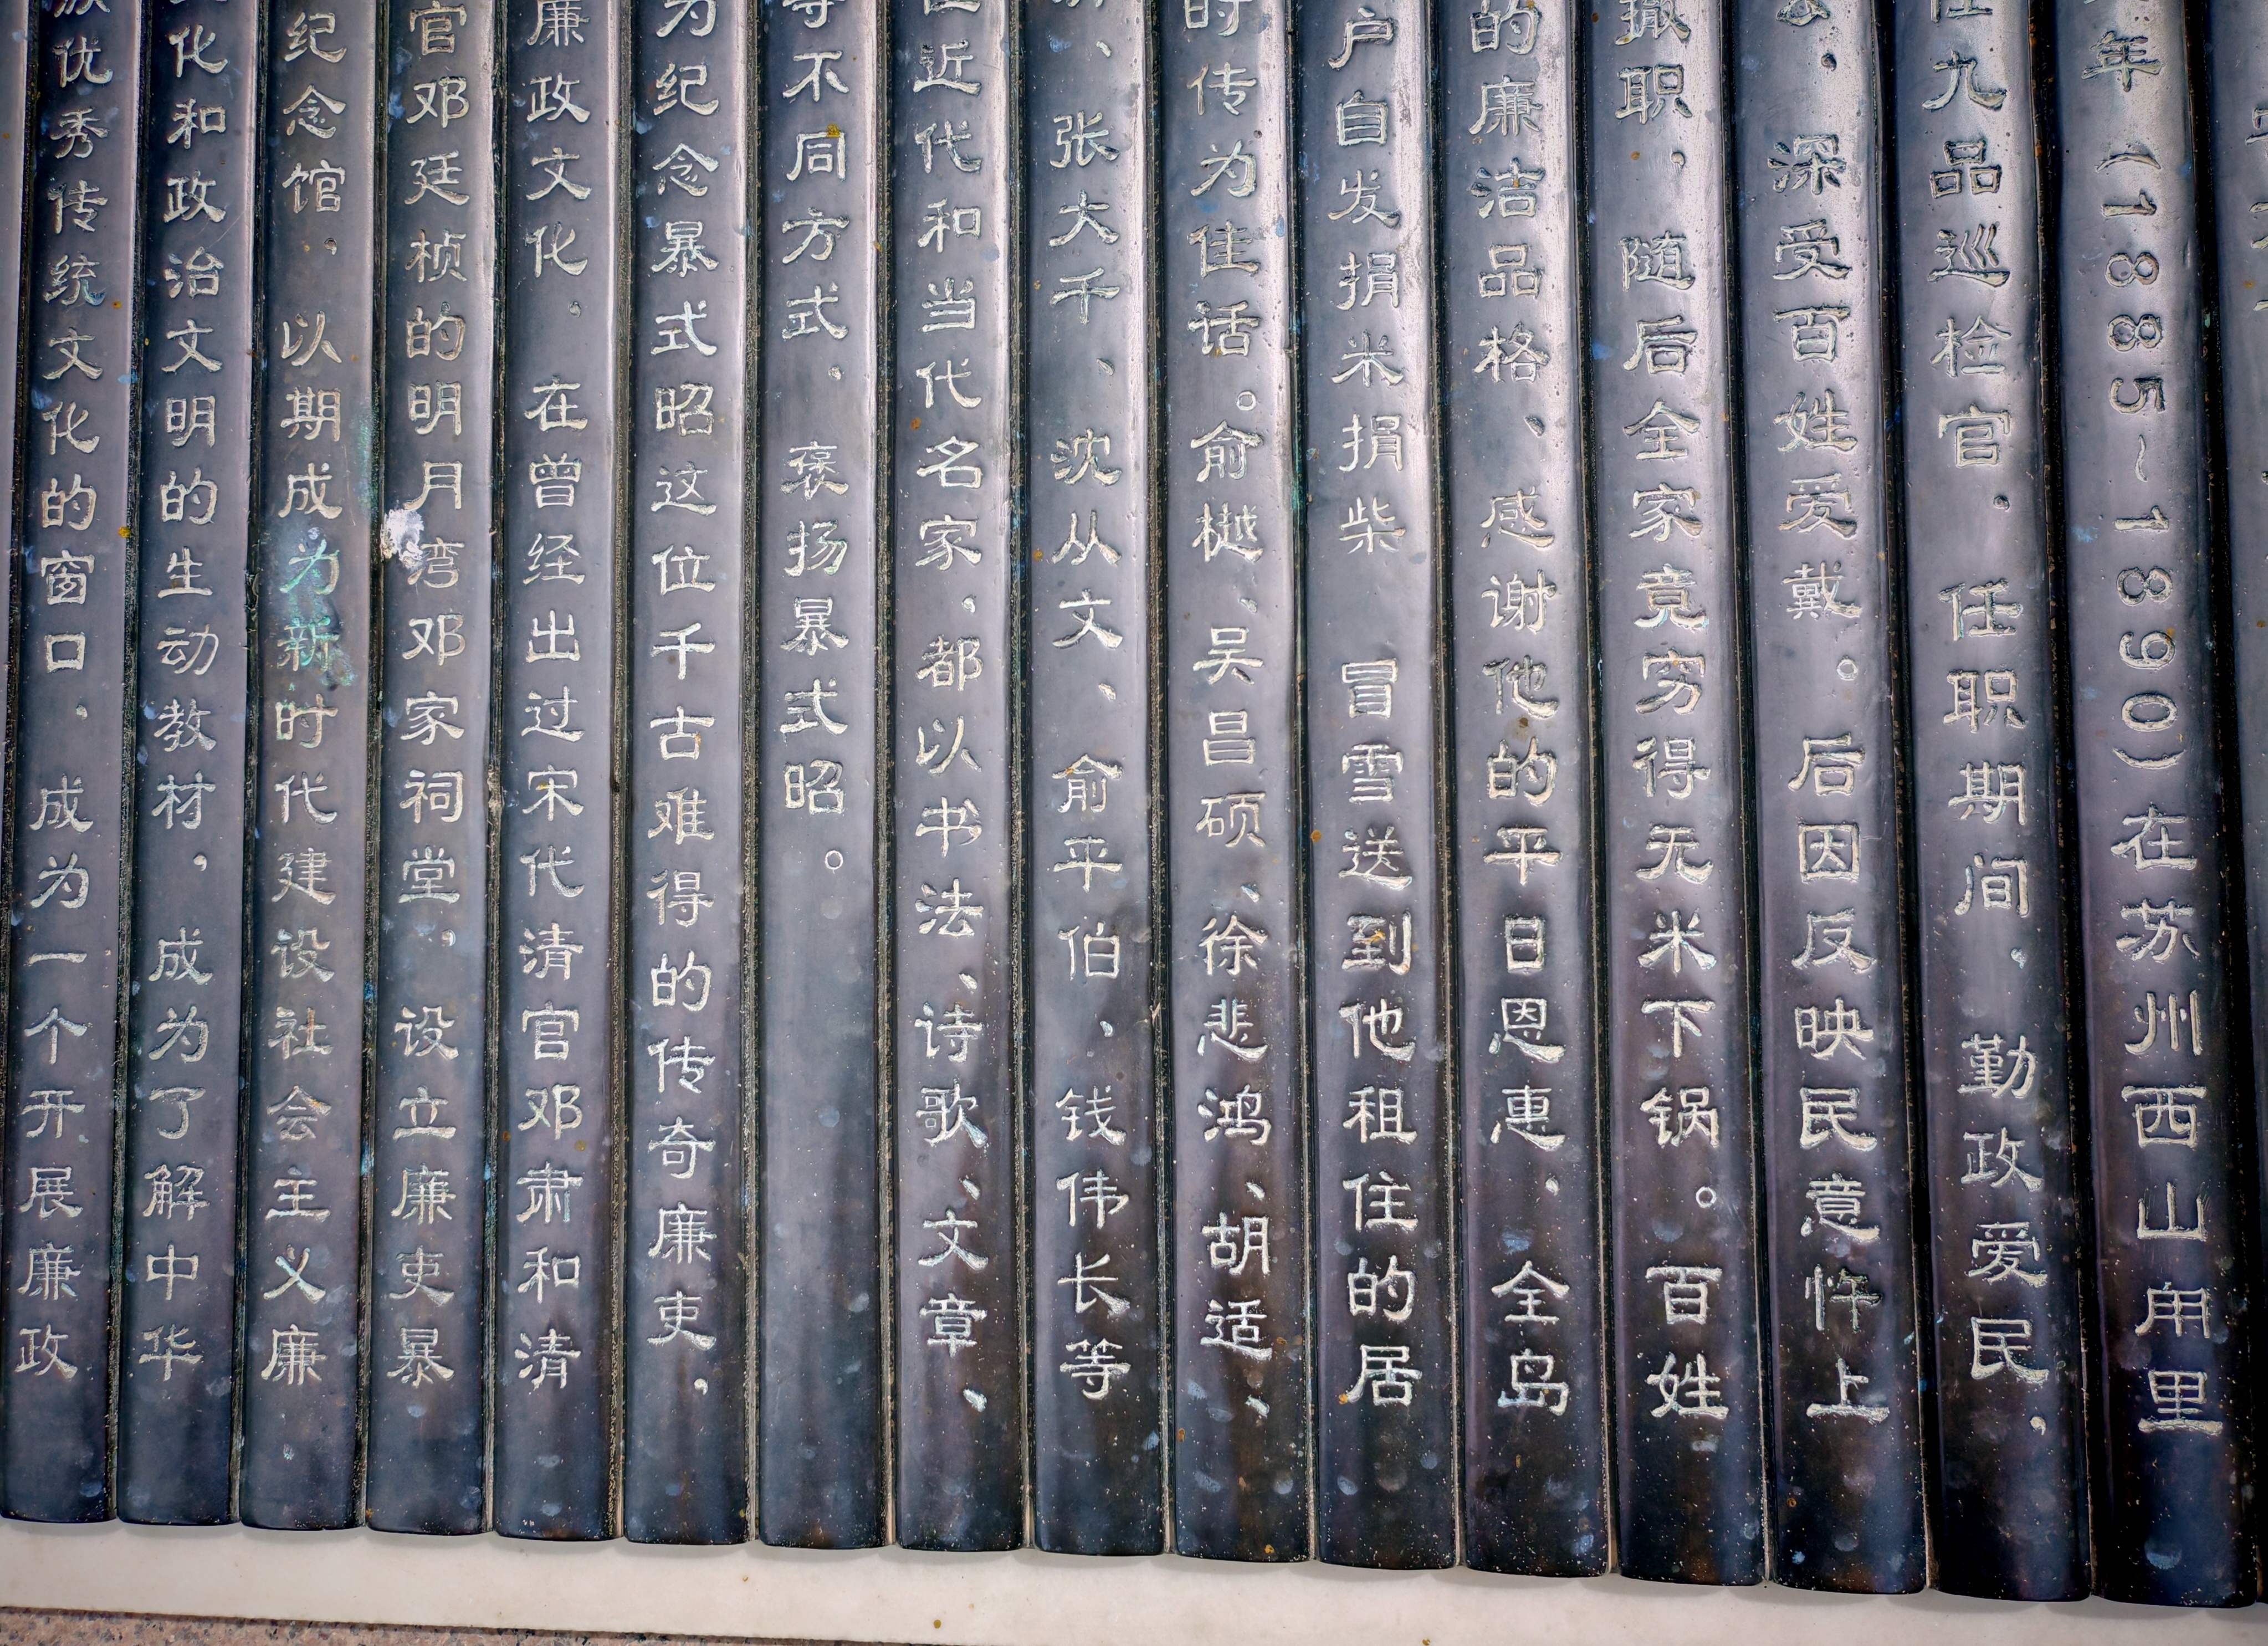 年（1885～1890）在苏州西山甪里
任九品巡检官，任职期间，勤政爱民，
深受百姓爱戴。后因反映民意忤上
撤职，随后全家竟穷得无米下锅。百姓
的廉洁品格、感谢他的平日恩惠，全岛
户自发捐米捐柴 冒雪送到他租住的居
时传为佳话。俞樾、吴昌硕、徐悲鸿、胡适、
、张大千、沈从文、俞平伯、钱伟长等
近代和当代名家，都以书法、诗歌、文章、
等不同方式，褒扬暴式昭。
为纪念暴式昭这位千古难得的传奇廉吏，
廉政文化，在曾经出过宋代清官邓肃和清
官邓廷桢的明月湾邓家祠堂，设立廉吏暴
纪念馆，以期成为新时代建设社会主义廉
化和政治文明的生动教材，成为了解中华
族优秀传统文化的窗口，成为一个开展廉政